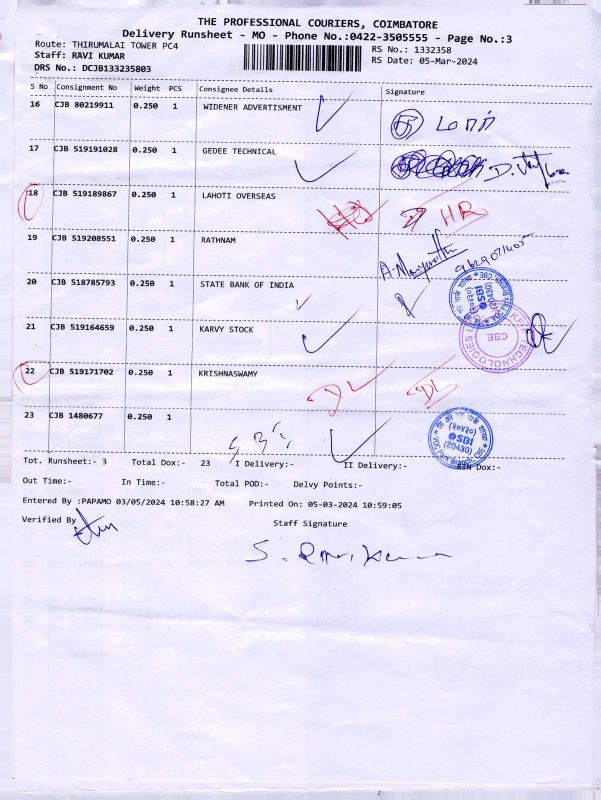 THE PROFESSIONAL COURIERS, COIMBATORE
Delivery Runsheet - MO - Phone No.:0422-3505555 - Page No.:3
Route: THIRUMALAI TOWER PC4
RS No.: 1332358
Staff: RAVI KUMAR
RS Date: 05-Mar-2024
DRS No.: DCJB133235803
S No Consignment No Weight PCS Consignee Details Signature
16 CJB 80219911 0.250 1 WIDENER ADVERTISMENT
17 CJB 519191028 0.250 1 GEDEE TECHNICAL
18 CJB 519189867 0.250 1 LAHOTI OVERSEAS HR
19 CJB 519208551 0.250 1 RATHNAM
20 CJB 518785793 0.250 1 STATE BANK OF INDIA
21 CJB 519164659 0.250 1 KARVY STOCK
CBE
22 CJB 519171702 0.250 1 KRISHNASWAMY DL DL
23 CJB 1480677 0.250 1
SBI
(20430)
Tot. Runsheet:- 3 Total Dox:- 23 I Delivery:- II Delivery:- RTN Dox:-
Out Time:- In Time:- Total POD:- Delvy Points:-
Entered By :PAPAMO 03/05/2024 10:58:27 AM Printed On: 05-03-2024 10:59:05
Verified By
Staff Signature
S. Ravi Kumar